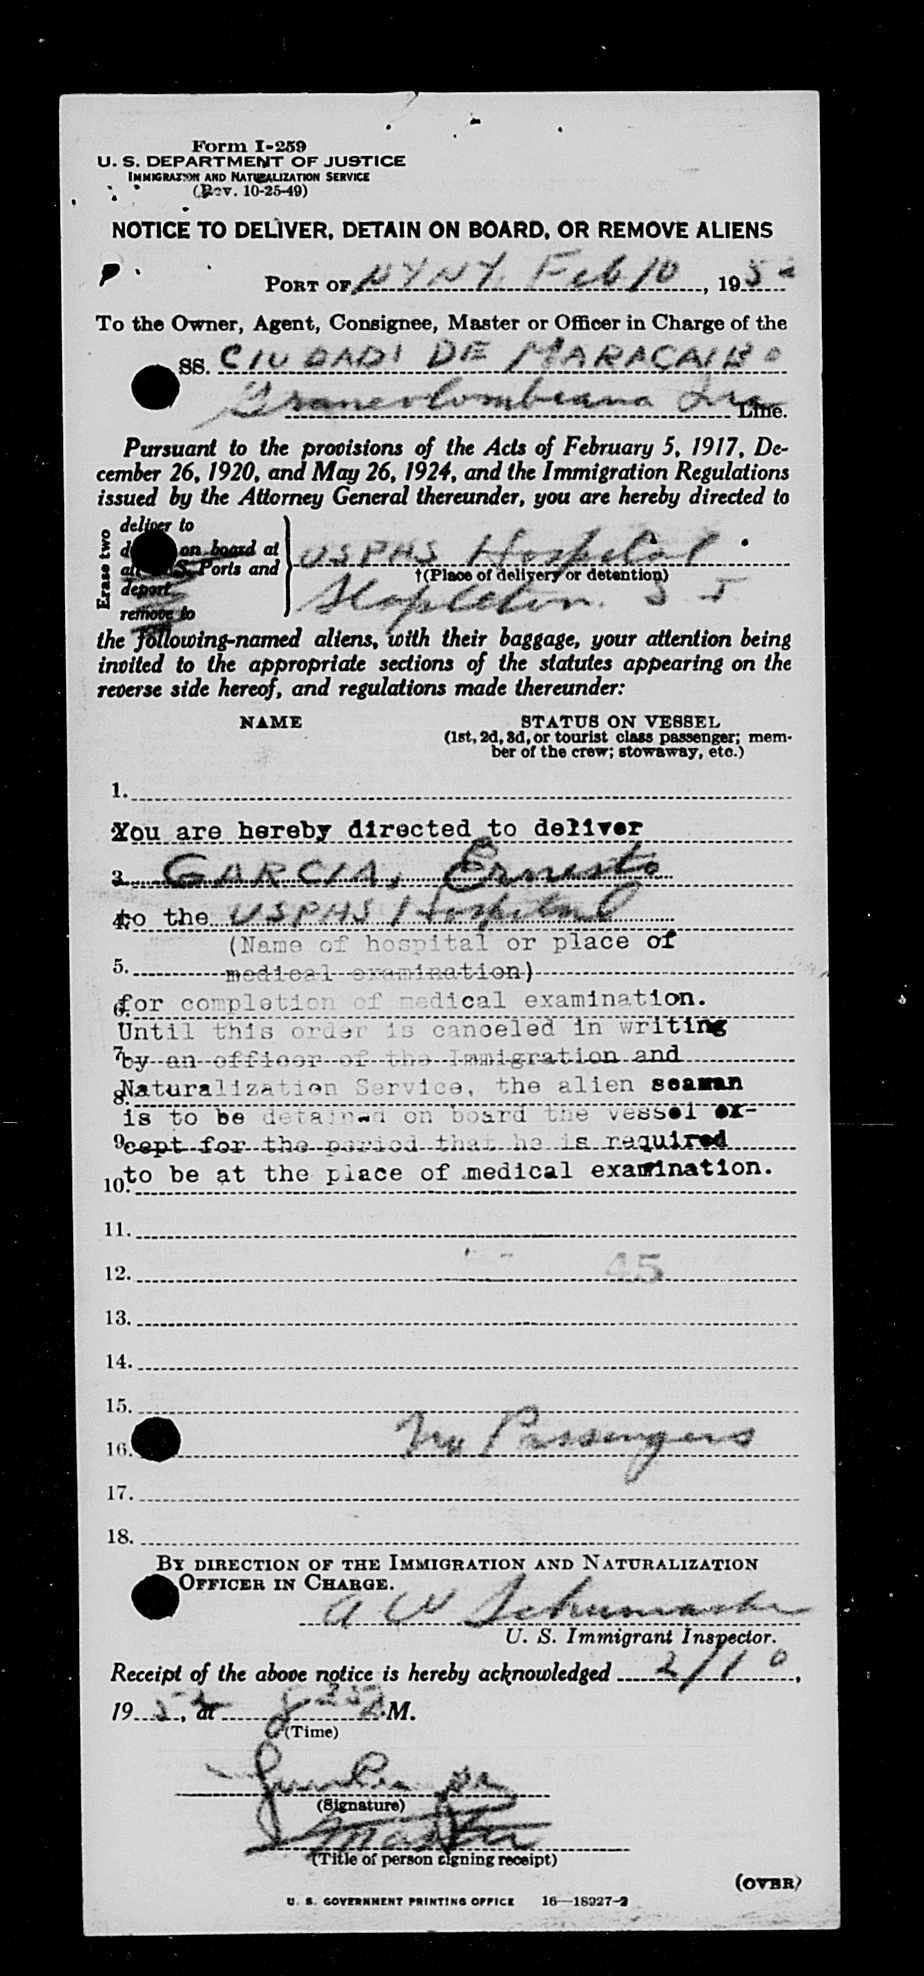 Form I-259
U. S. DEPARTMENT OF JUSTICE
IMMIGRATION AND NATURALIZATION SERVICE
(Rev. 10-25-49)
NOTICE TO DELIVER, DETAIN ON BOARD, OR REMOVE ALIENS
PORT OF NYNY. Feb 10, 1952
To the Owner, Agent, Consignee, Master or Officer in Charge of the
SS. CIUDADI DE MARACAIBO
Grancolombiana Line.
Pursuant to the provisions of the Acts of February 5, 1917, De-
cember 26, 1920, and May 26, 1924, and the Immigration Regulations
issued by the Attorney General thereunder, you are hereby directed to
Erase two
deliver to
on board at
U.S. Ports and
deport
remove to
USPHS Hospital
†(Place of delivery or detention)
Stapleton. S I
the following-named aliens, with their baggage, your attention being
invited to the appropriate sections of the statutes appearing on the
reverse side hereof, and regulations made thereunder:
NAME STATUS ON VESSEL
(1st, 2d, 3d, or tourist class passenger; mem-
ber of the crew; stowaway, etc.)
1.
2. You are hereby directed to deliver
3. GARCIA, Ernesto
4. to the USPHS Hospital
(Name of hospital or place of
5. medical examination)
6. for completion of medical examination.
Until this order is canceled in writing
7. by an officer of the Immigration and
8. Naturalization Service, the alien seaman
is to be detained on board the vessel ex-
9. cept for the period that he is required
10. to be at the place of medical examination.
11.
12. 45
13.
14.
15.
16. No Passengers
17.
18.
BY DIRECTION OF THE IMMIGRATION AND NATURALIZATION
OFFICER IN CHARGE.
A W Schumacher
U. S. Immigrant Inspector.
Receipt of the above notice is hereby acknowledged 2/10,
1952, at 8 35 A M.
(Time)
(Signature)
Master
(Title of person signing receipt)
(OVER)
U. S. GOVERNMENT PRINTING OFFICE 16—18927-2